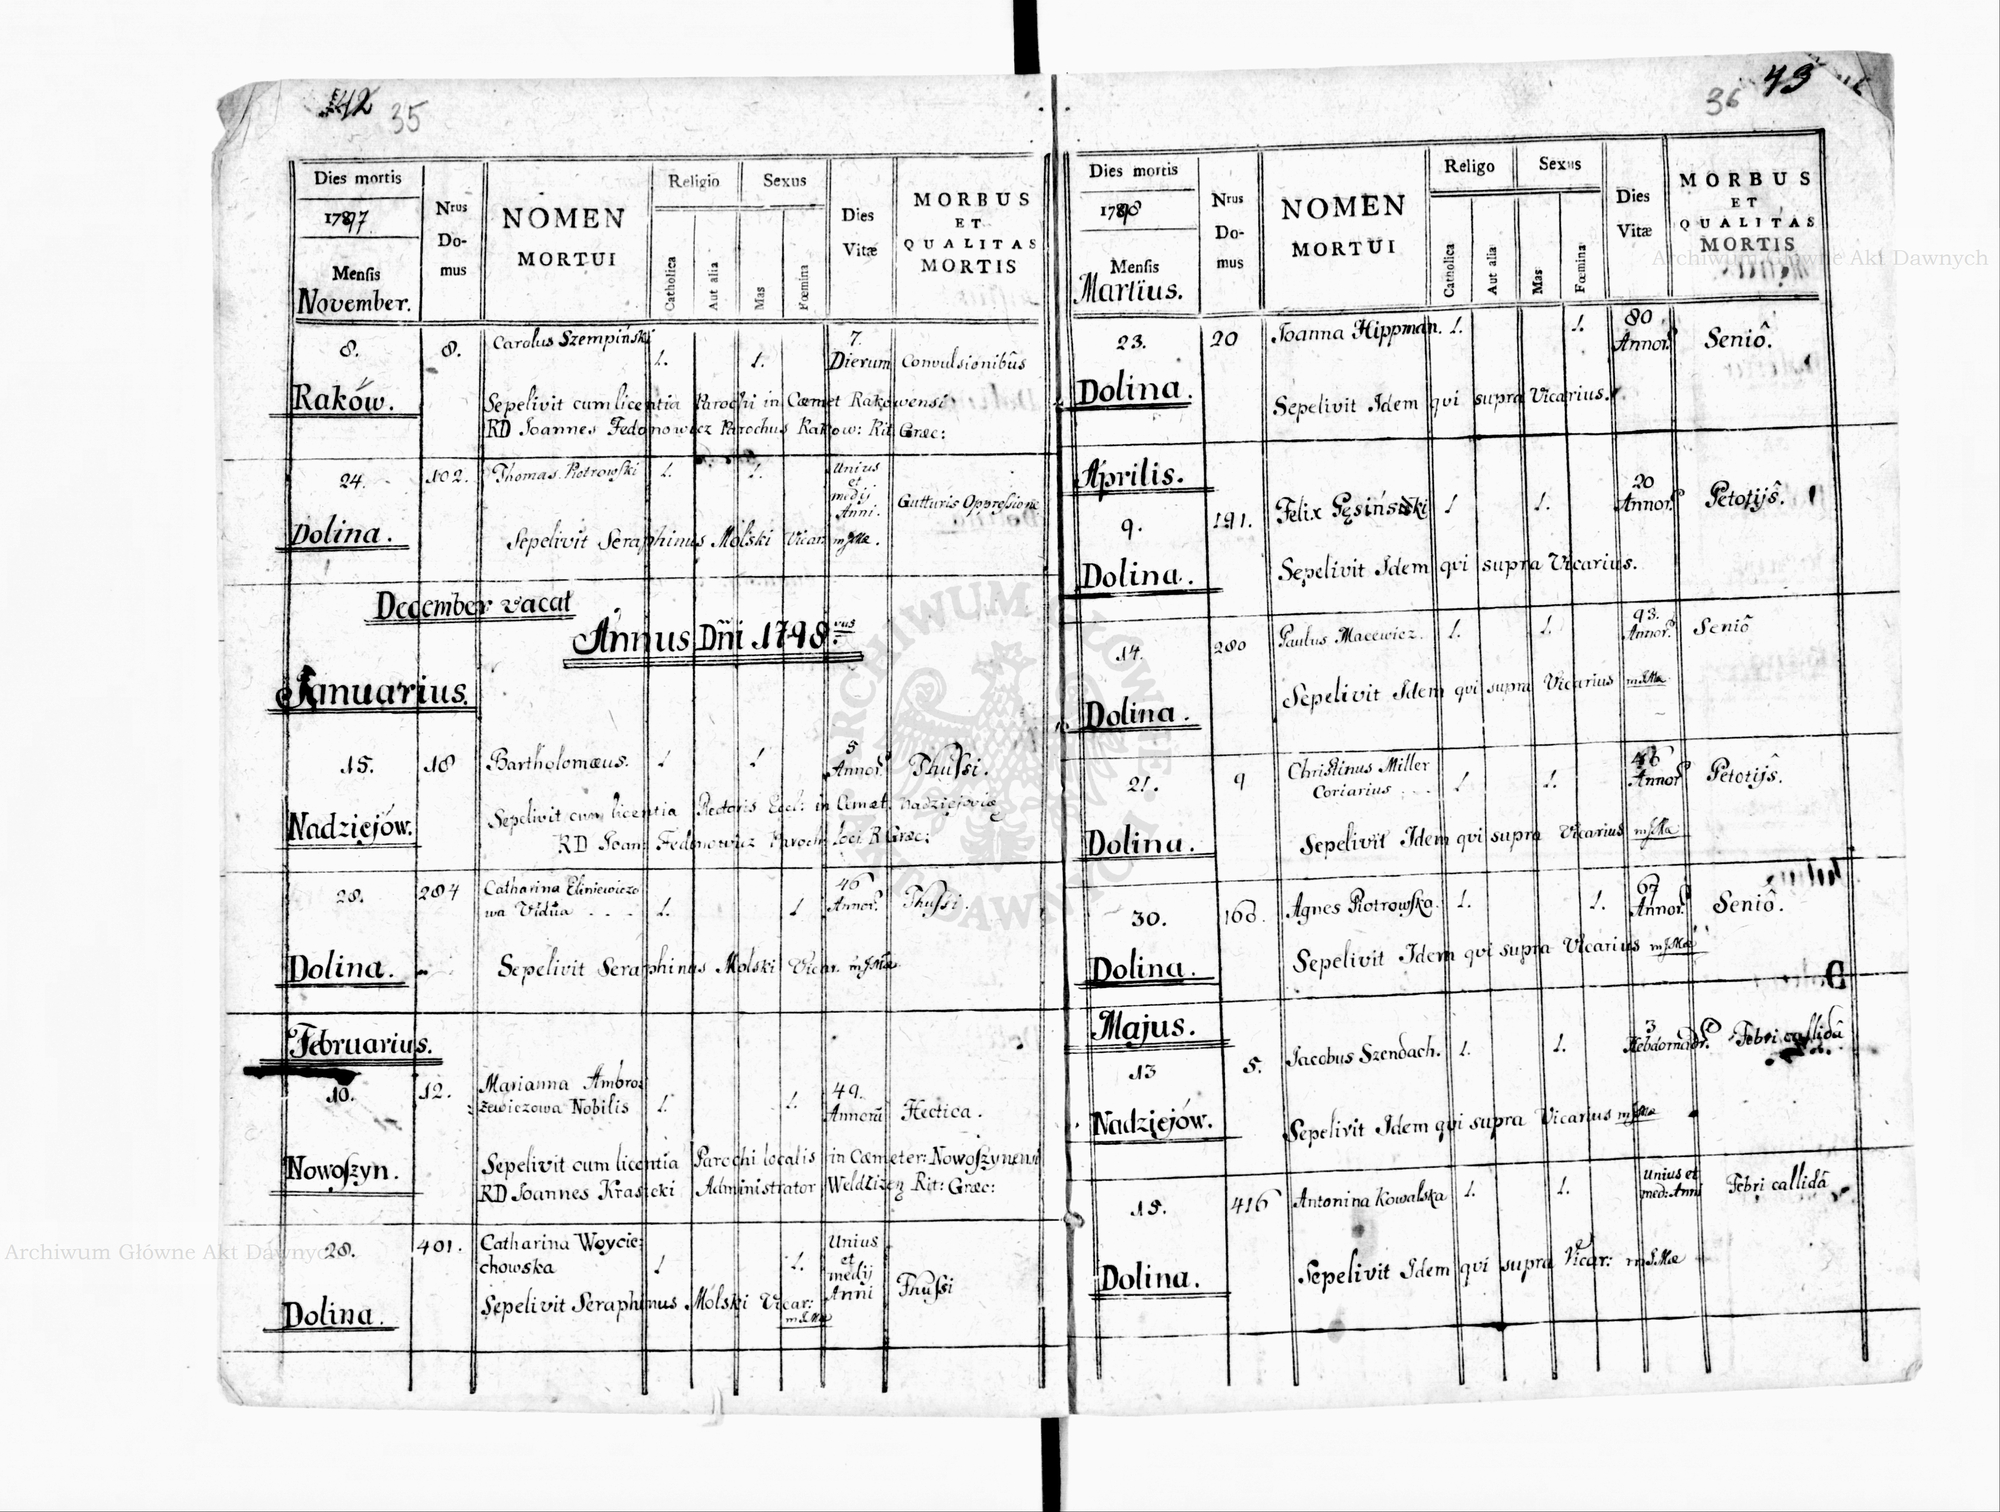 42 35
Dies mortis
1797
Mensis
November.
Nrus Domus
NOMEN MORTUI
Religio
Catholica
Aut alia
Sexus
Mas
Fœmina
Dies Vitæ
MORBUS ET QUALITAS MORTIS
8. 8. Carolus Szempiński 1. 1. 7. Dierum Convulsionibûs
Raków.
Sepelivit cum licentia Parochi in Cœmet Rakowensi
RD Joannes Fedonowicz Parochus Rakow: Rit Græc:
24. 102. Thomas Piotrowski 1. 1. Unius et medij Anni. Gutturis Oppressione
Dolina.
Sepelivit Seraphinus Molski Vicar mpMa.
December vacat
Annus Dñi 1798.vus
Januarius.
15. 18 Bartholomæus. 1 1 5 Annor. Thussi.
Nadziejów.
Sepelivit cum licentia Rectoris Eccl: in Cœmet. Nadziejovię
RD Joan: Fedonowicz Paroch: loci R Græc:
28. 284 Catharina Eliniewiczo
wa Vidua 1. 1 46 Annor. Thussi.
Dolina.
Sepelivit Seraphinus Molski Vicar.
Februarius.
10. 12. Marianna Ambro:
żewiczowa Nobilis 1. 1. 49. Annorũ Hectica.
Nowoszyn.
Sepelivit cum licentia Parochi localis in Cœmeter: Nowoszynensi
RD Joannes Krasicki Administrator Weldzizen Rit: Græc:
28. 401. Catharina Woycie:
chowska 1 1. Unius et medij Anni Thussi
Dolina.
Sepelivit Seraphinus Molski Vicar:
36 43
Dies mortis
1798
Mensis
Martius.
Nrus Domus
NOMEN MORTUI
Religo
Catholica
Aut alia
Sexus
Mas
Fœmina
Dies Vitæ
MORBUS ET QUALITAS MORTIS
23. 20 Joanna Hippman. 1. 1. 80 Annor. Seniô.
Dolina.
Sepelivit Idem qvi supra Vicarius.
Aprilis.
9. 191. Felix Gęsiński 1 1. 20 Annor. Petotijŝ.
Dolina.
Sepelivit Idem qvi supra Vicarius.
14. 280 Paulus Macewicz. 1. 1. 93. Annor. Seniô
Dolina.
Sepelivit Idem qvi supra Vicarius
21. 9 Christinus Miller
Coriarius 1 1. 46 Annor Petotijŝ.
Dolina.
Sepelivit Idem qvi supra Vicarius
30. 168. Agnes Piotrowska. 1. 1. 67 Annor. Seniô.
Dolina.
Sepelivit Idem qvi supra Vicarius
Majus.
13 5. Jacobus Szendach. 1. 1. 3 Hebdomadr. Febri callidâ
Nadziejów.
Sepelivit Idem qvi supra Vicarius
15. 416 Antonina Kowalska 1. 1. Unius et med: Anni Febri callidâ
Dolina.
Sepelivit Idem qvi supra Vicar:
Archiwum Główne Akt Dawnych
Archiwum Główne Akt Dawnych
ARCHIWUM GŁÓWNE AKT DAWNYCH